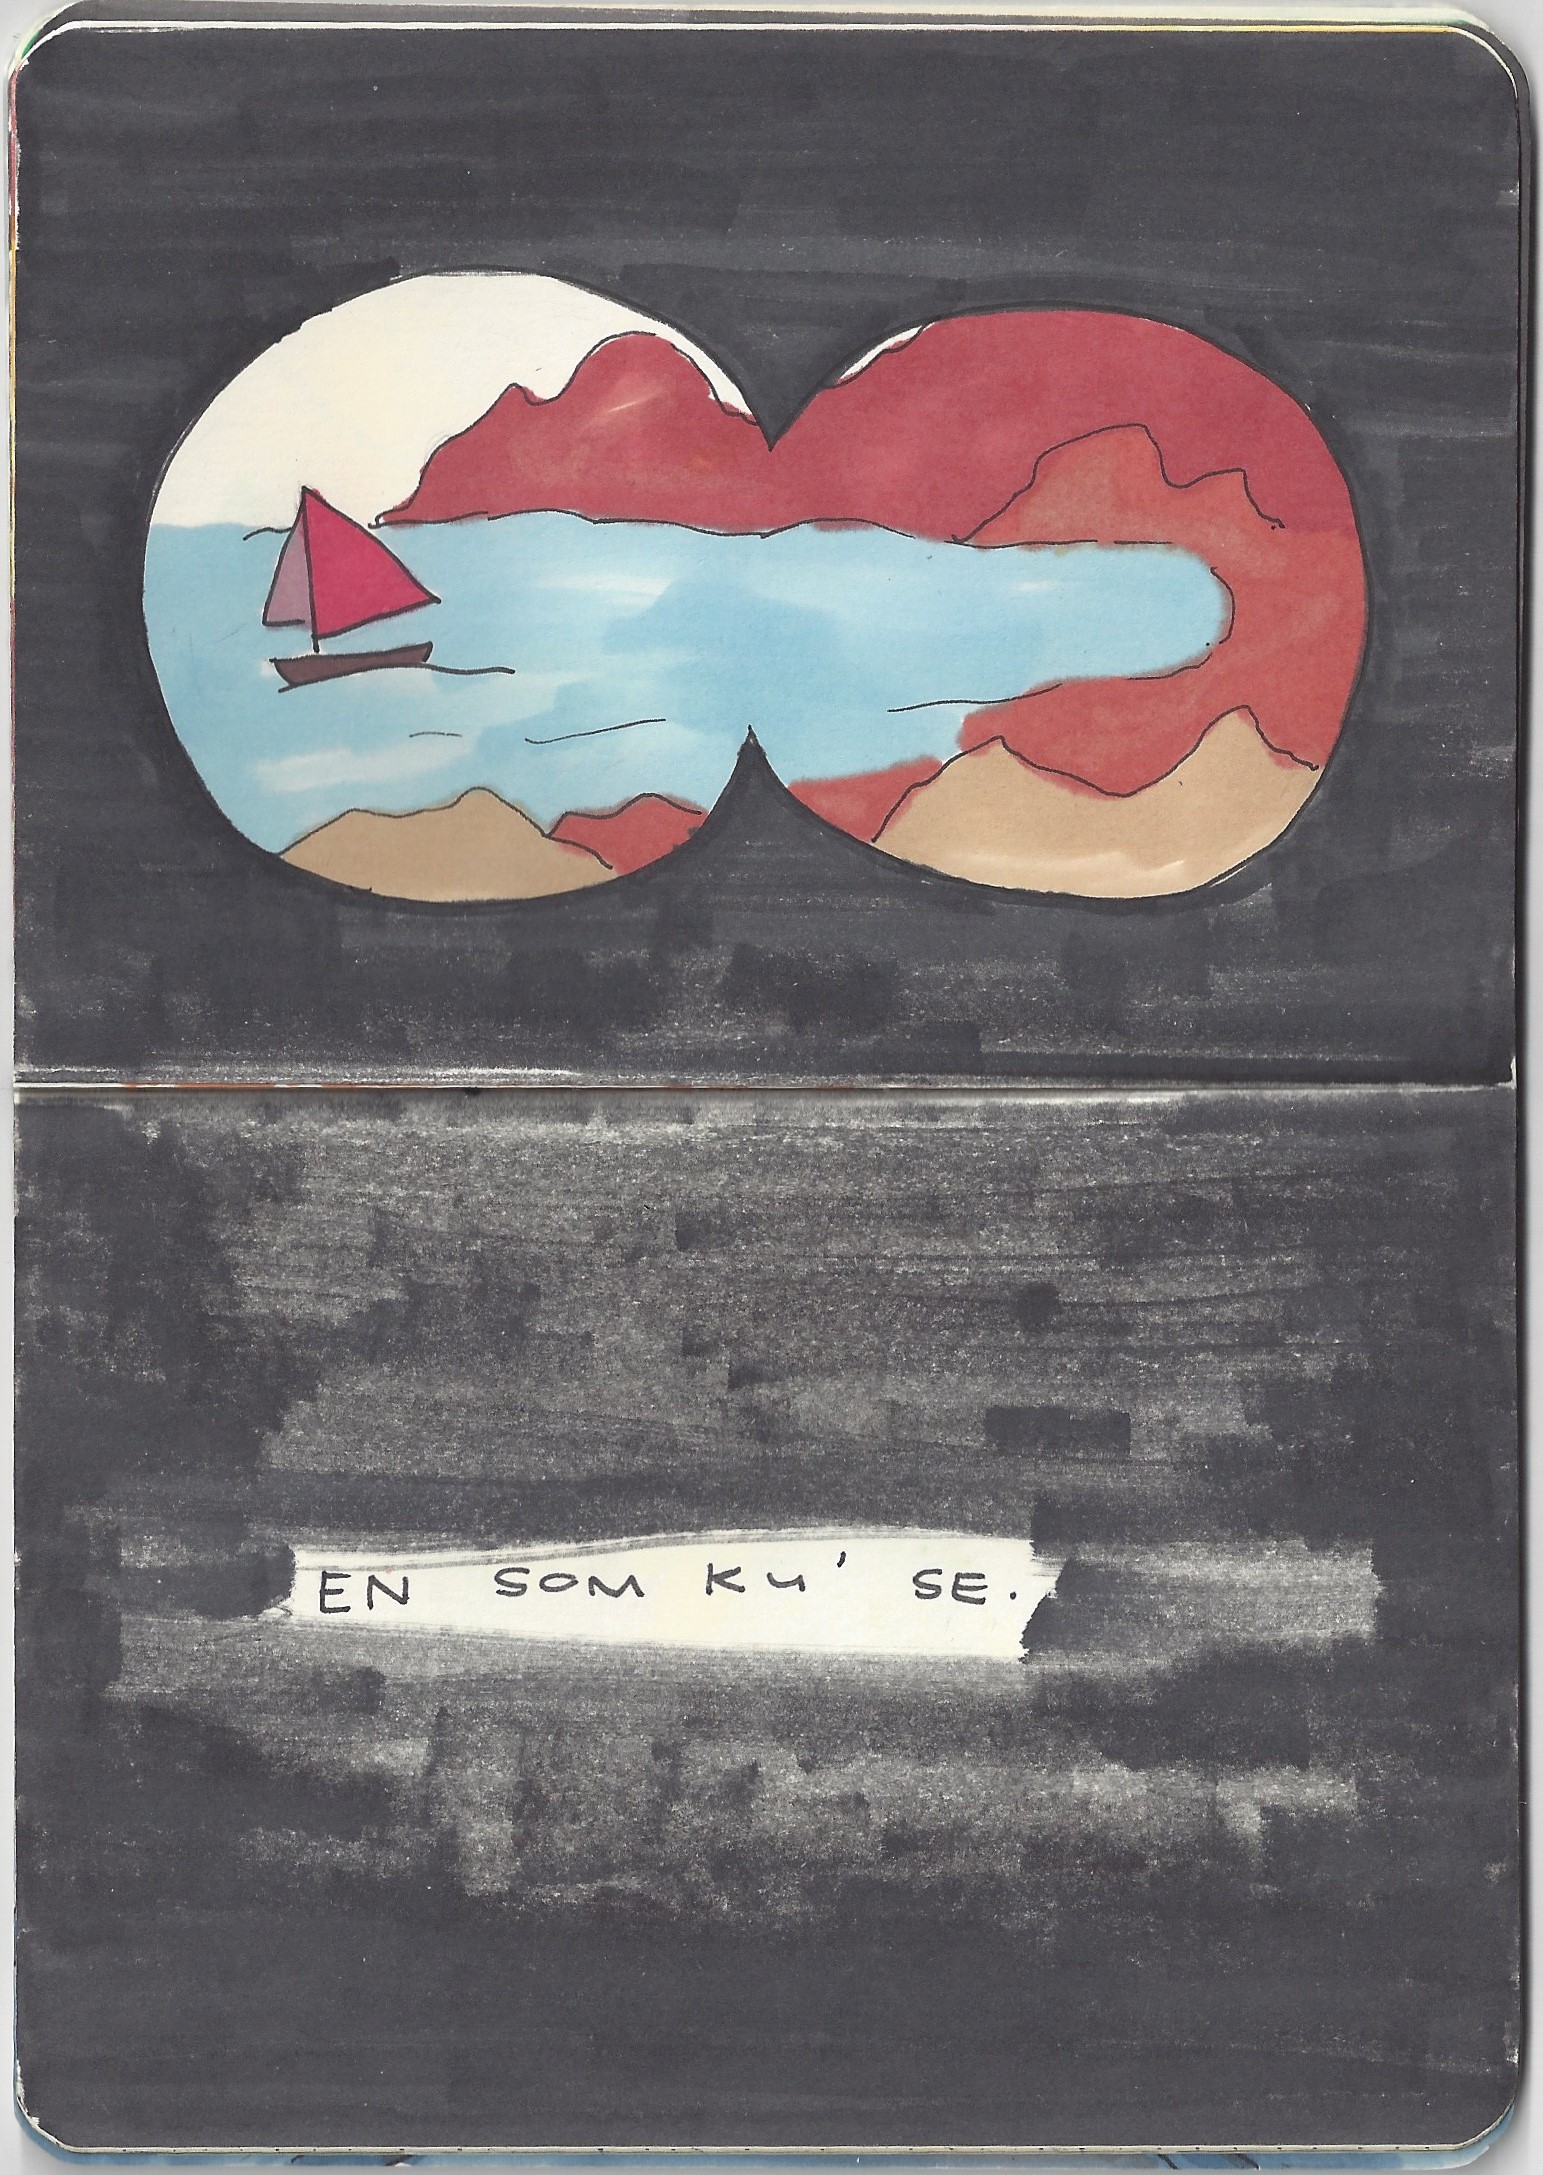 EN SOM KU' SE.